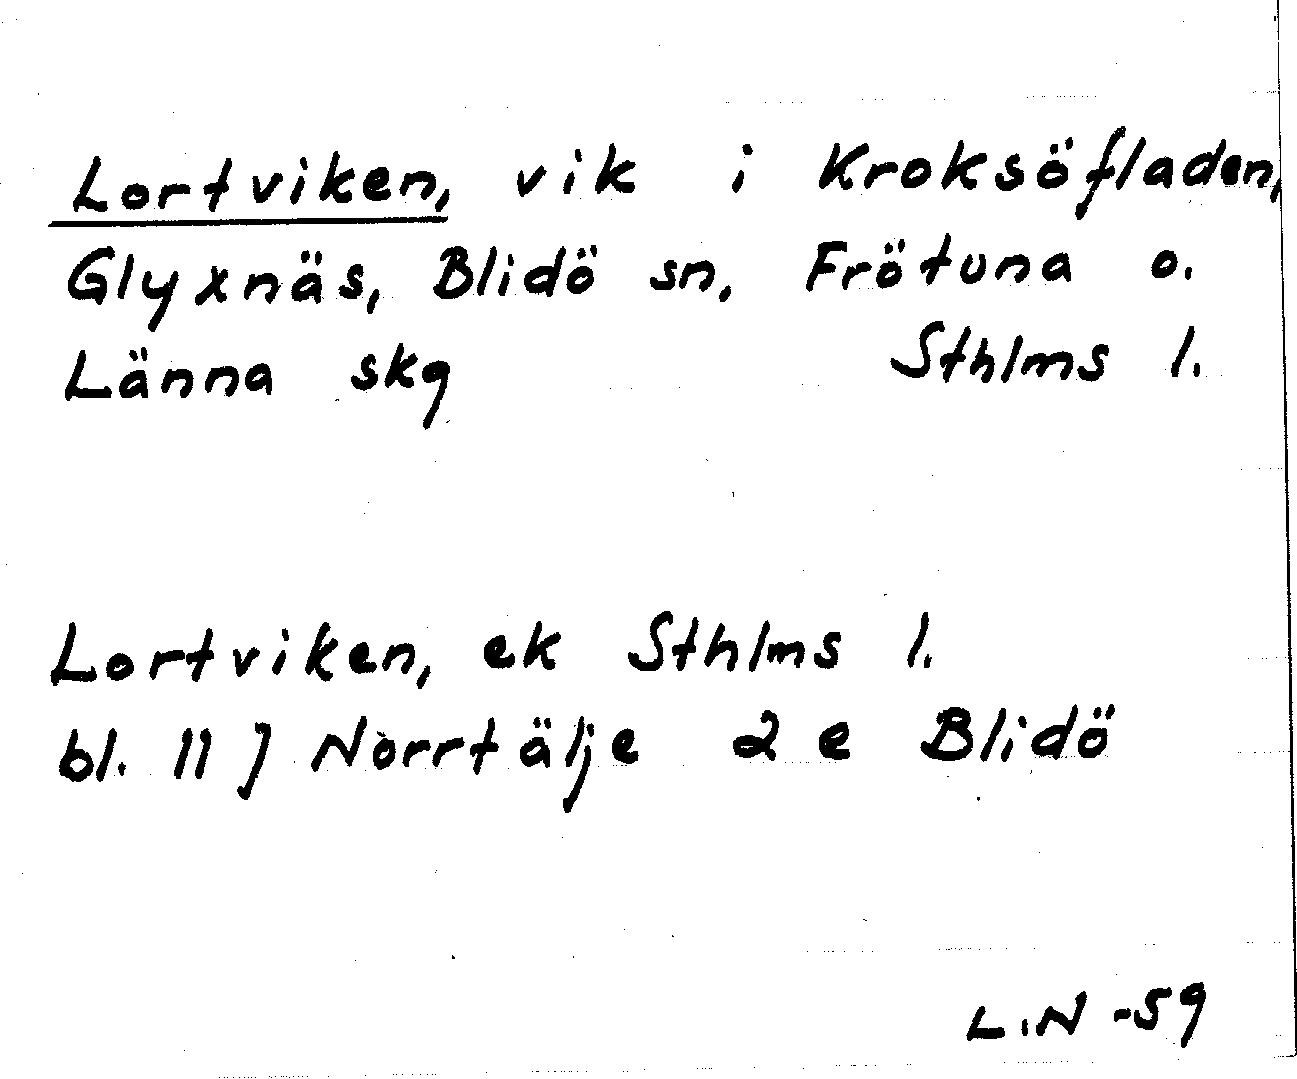 Lortviken, vik i Kroksöfladen,
Glyxnäs, Blidö sn, Frötuna o.
Länna skg Sthlms l.
Lortviken, ek Sthlms l.
bl. 11 J Norrtälje 2 e Blidö
L.N -59